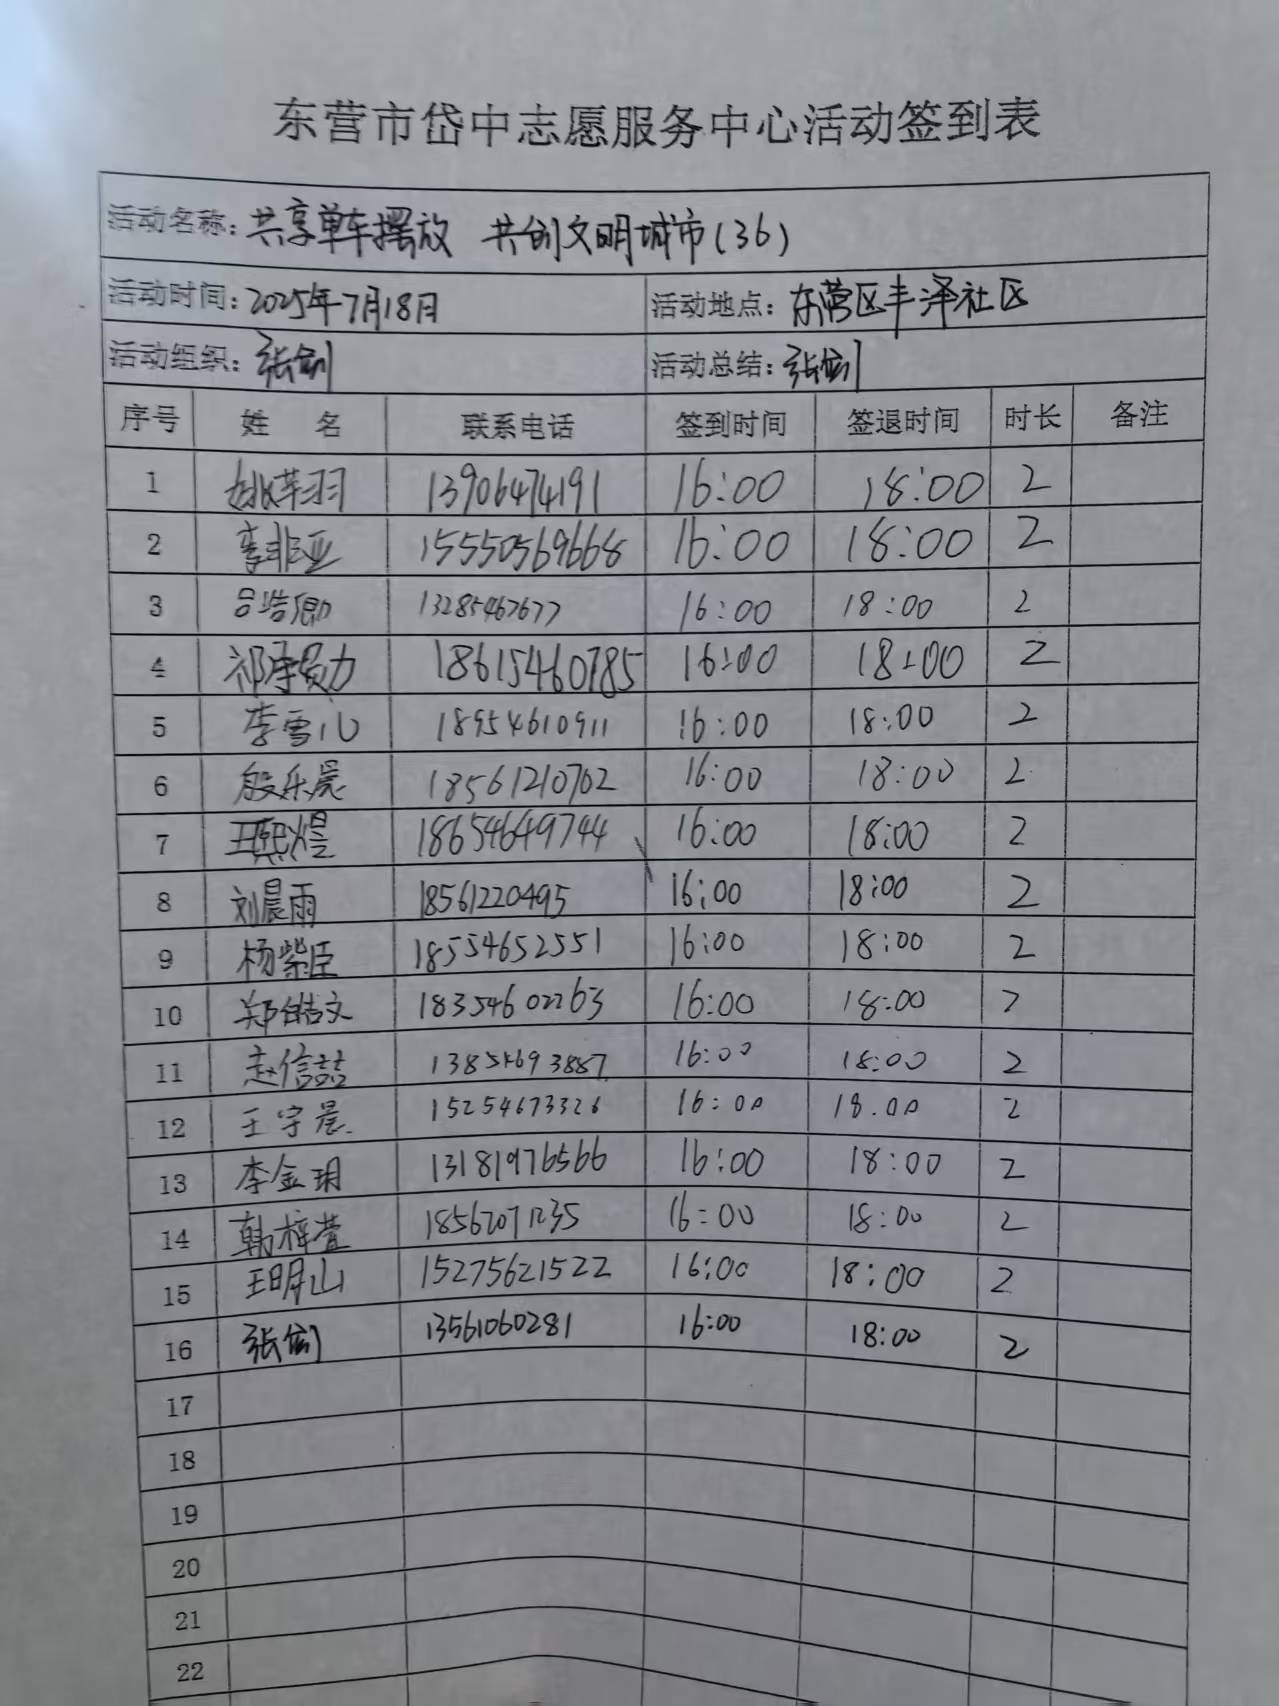 东营市岱中志愿服务中心活动签到表
活动名称：共享单车摆放 共创文明城市（36）
活动时间：2025年7月18日 活动地点：东营区丰泽社区
活动组织：张剑 活动总结：张剑
序号 姓 名 联系电话 签到时间 签退时间 时长 备注
1 姚芊羽 13906474191 16:00 18:00 2
2 李非亚 15550569668 16:00 18:00 2
3 吕浩卿 13285467677 16:00 18:00 2
4 祁 18615460785 16:00 18:00 2
5 李雪儿 18954610911 16:00 18:00 2
6 殷乐晨 18561210702 16:00 18:00 2
7 王熙煜 18654649744 16:00 18:00 2
8 刘晨雨 18561220495 16:00 18:00 2
9 杨紫臣 18554652551 16:00 18:00 2
10 郑皓文 18354602263 16:00 18:00 2
11 赵信喆 13854693887 16:00 18:00 2
12 王宇晨 15254673326 16:00 18.00 2
13 李金玥 13181976566 16:00 18:00 2
14 韩梓萱 18562071235 16:00 18:00 2
15 王明山 15275621522 16:00 18:00 2
16 张剑 13561060281 16:00 18:00 2
17
18
19
20
21
22